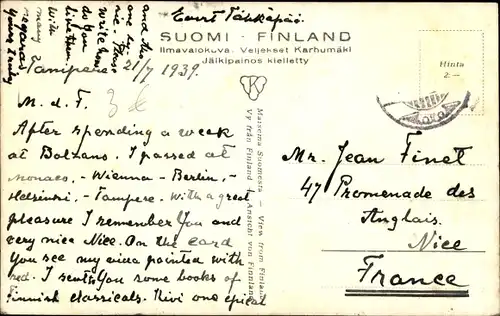 Eevert Pähkäpää.
SUOMI - FINLAND
Ilmavalokuva. Veljekset Karhumäki
Jälkipainos kielletty
Hinta
2.—
Tampere 21/7 1939.
M. d. F.
After spending a week
at Bolzano. I passed at
Monaco, - Wienna - Berlin, -
Helsinki, - Tampere. With a great
pleasure I remember You and
very nice Nice. On the card
You see my painted with
red. I send You some books of
Finnish classicals. Kivi one epical
and the
one ly-
ric. Please
write how
do you
like them.
With
many
regards
Yours truly
Maisema Suomesta - View from Finland
Vy från Finland - Ansicht von Finnland
Mr. Jean Finet
47 Promenade des
Anglais.
Nice
France